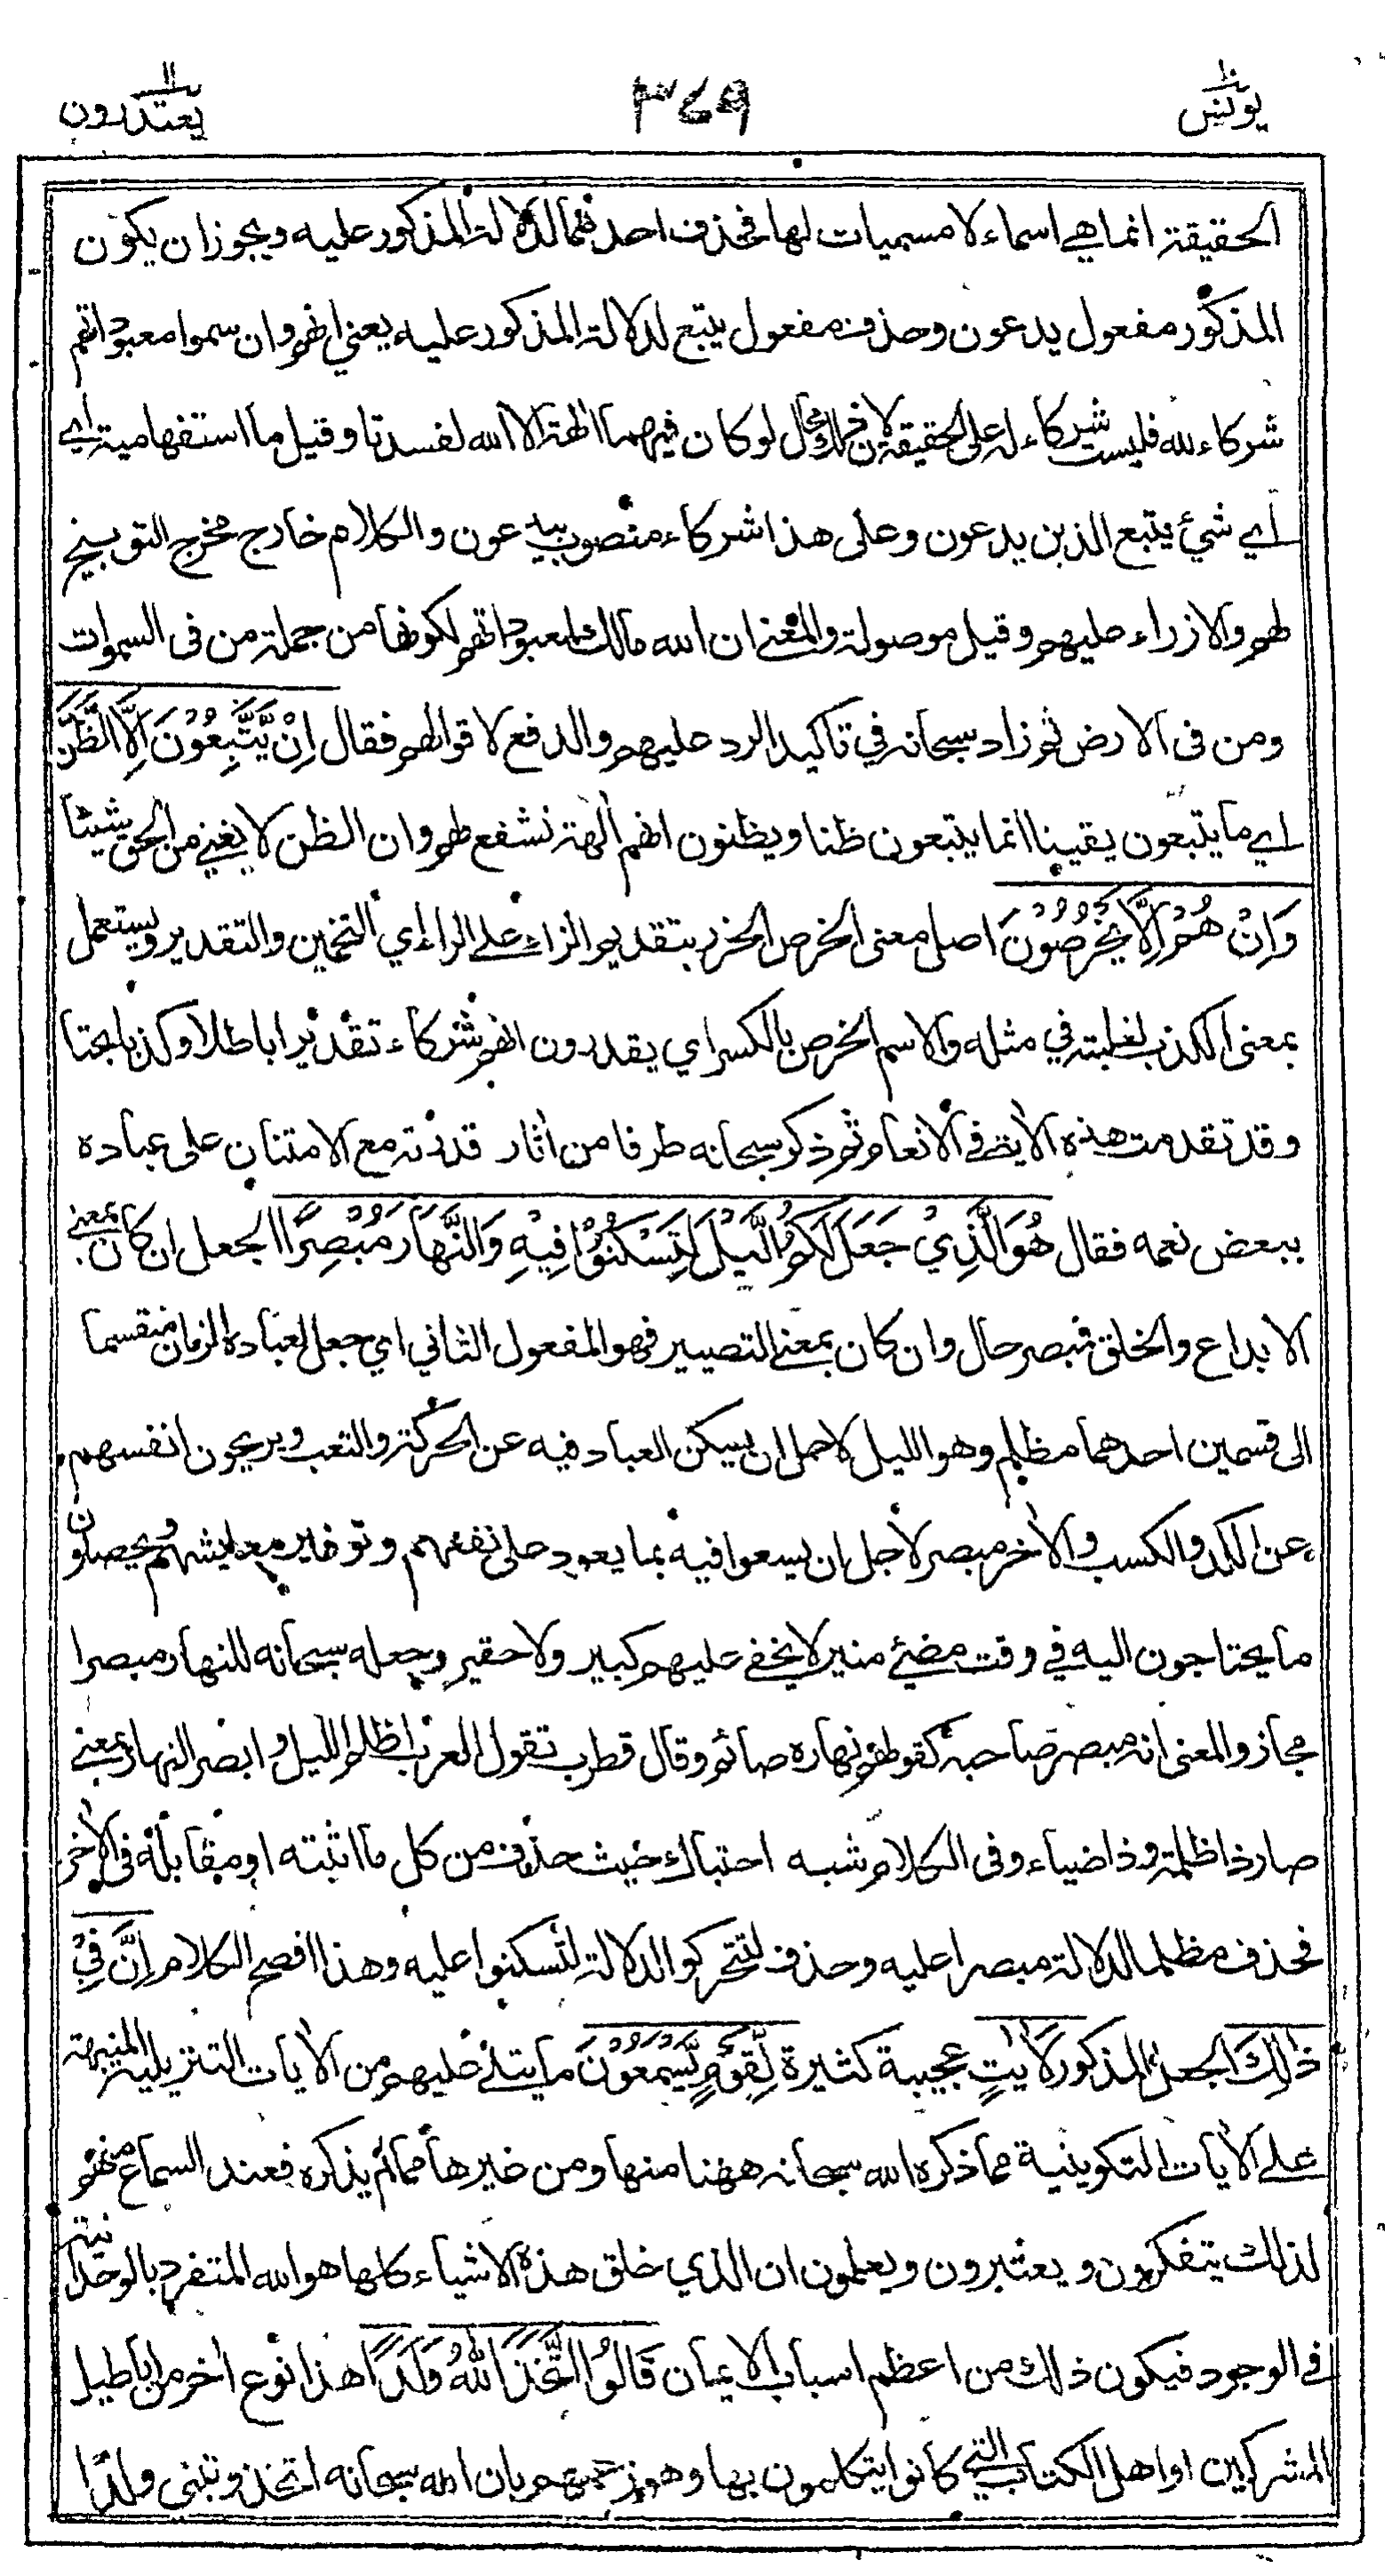 يونس ١٠
٣٧٩
يعتذرون ١١
الحقيقة انما هي اسماء لا مسميات لها فحذف احدهما لدلالة المذكور عليه ويجوز ان يكون
المذكور مفعول يدعون وحذف مفعول يتبع لدلالة المذكور عليه يعني انهم وان سموا معبوداتهم
شركاء لله فليست شركاء له على الحقيقة لان ذلك محال لو كان فيهما الهة الا الله لفسدتا وقيل ما استفهامية اي
اي شئ يتبع الذين يدعون وعلى هذا شركاء منصوب بيدعون والكلام خارج مخرج التوبيخ
لهم والازراء عليهم وقيل موصولة والمعنى ان الله مالك لمعبوداتهم لكونها من جملة من فى السموات
ومن فى الارض ثم زاد سبحانه في تاكيد الرد عليهم والدفع لاقوالهم فقال اِنْ يَّتَّبِعُوْنَ اِلَّا الظَّنَّ
اي ما يتبعون يقينا انما يتبعون ظنا ويظنون انهم الهة تشفع لهم وان الظن لا يغني من الحق شيئا
وَاِنْ هُمْ اِلَّا يَخْرُصُوْنَ اصل معنى الخرص الحزر بتقديم الزاء على الراء اي التخمين والتقدير ويستعمل
بمعنى الكذب لغلبته في مثله والاسم الخرص بالكسر اي يقدرون انهم شركاء تقديرا باطلا وكذبا بحتا
وقد تقدمت هذه الاية في الانعام ثم ذكر سبحانه طرفا من اثار قدرته مع الامتنان على عباده
ببعض نعمه فقال هُوَ الَّذِيْ جَعَلَ لَكُمُ الَّيْلَ لِتَسْكُنُوْا فِيْهِ وَالنَّهَارَ مُبْصِرًا الجعل ان كان بمعنى
الابداع والخلق فمبصر حال وان كان بمعنى التصيير فهو المفعول الثاني اي جعل لعباده الزمان منقسما
الى قسمين احدهما مظلم وهو الليل لاجل ان يسكن العباد فيه عن الحركة والتعب ويريحون انفسهم
عن الكد والكسب والاخر مبصر لاجل ان يسعوا فيه بما يعود على نفعهم وتوفير معايشهم ويحصلون
ما يحتاجون اليه في وقت مضئ منير لا يخفى عليهم كبير ولا حقير وجعله سبحانه للنهار مبصرا
مجاز والمعنى انه مبصر صاحبه كقولهم نهاره صائم وقال قطرب تقول العرب اظلم الليل وابصر النهار بمعنى
صار ذا ظلمة وذا ضياء وفى الكلام شبه احتباك حيث حذف من كل ما اثبته او مقابله فى الاخر
فحذف مظلما لدلالة مبصرا عليه وحذف لتتحركوا لدلالة لتسكنوا عليه وهذا افصح الكلام اِنَّ فِيْ
ذٰلِكَ الجعل المذكور لَاٰيٰتٍ عجيبة كثيرة لِّقَوْمٍ يَّسْمَعُوْنَ ما يتلى عليهم من الايات التنزيلية المنبهة
على الايات التكوينية مما ذكره الله سبحانه ههنا منها ومن غيرها مما لم يذكره فعند السماع منهم
لذلك يتفكرون ويعتبرون ويعلمون ان الذي خلق هذه الاشياء كلها هو الله المتفرد بالوحدانية
في الوجود فيكون ذلك من اعظم اسباب الايمان قَالُوا اتَّخَذَ اللهُ وَلَدًا هذا نوع اخر من اباطيل
المشركين او اهل الكتاب التي كانوا يتكلمون بها وهو زعمهم بان الله سبحانه اتخذ وتبنى ولدا